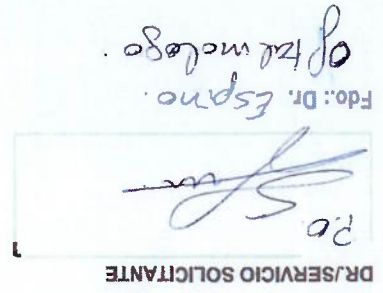 DR./SERVICIO SOLICITANTE
P.O
Fdo.: Dr. Espino.
Oftalmologo.